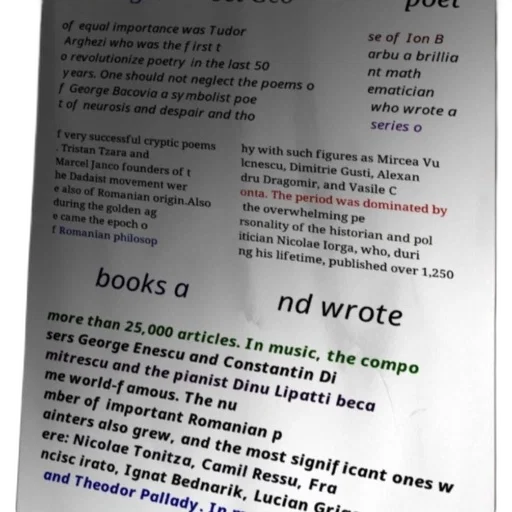 poet
of equal importance was Tudor
Arghezi who was the first t
o revolutionize poetry in the last 50
years. One should not neglect the poems o
f George Bacovia a symbolist poe
t of neurosis and despair and tho
se of Ion B
arbu a brillia
nt math
ematician
who wrote a
series o
f very successful cryptic poems
. Tristan Tzara and
Marcel Janco founders of t
he Dadaist movement wer
e also of Romanian origin.Also
during the golden ag
e came the epoch o
f Romanian philosop
hy with such figures as Mircea Vu
lcnescu, Dimitrie Gusti, Alexan
dru Dragomir, and Vasile C
onta. The period was dominated by
the overwhelming pe
rsonality of the historian and pol
itician Nicolae Iorga, who, duri
ng his lifetime, published over 1,250
books a
nd wrote
more than 25,000 articles. In music, the compo
sers George Enescu and Constantin Di
mitrescu and the pianist Dinu Lipatti beca
me world-famous. The nu
mber of important Romanian p
ainters also grew, and the most significant ones w
ere: Nicolae Tonitza, Camil Ressu, Fra
ncisc irato, Ignat Bednarik, Lucian
and Theodor Pallady. In